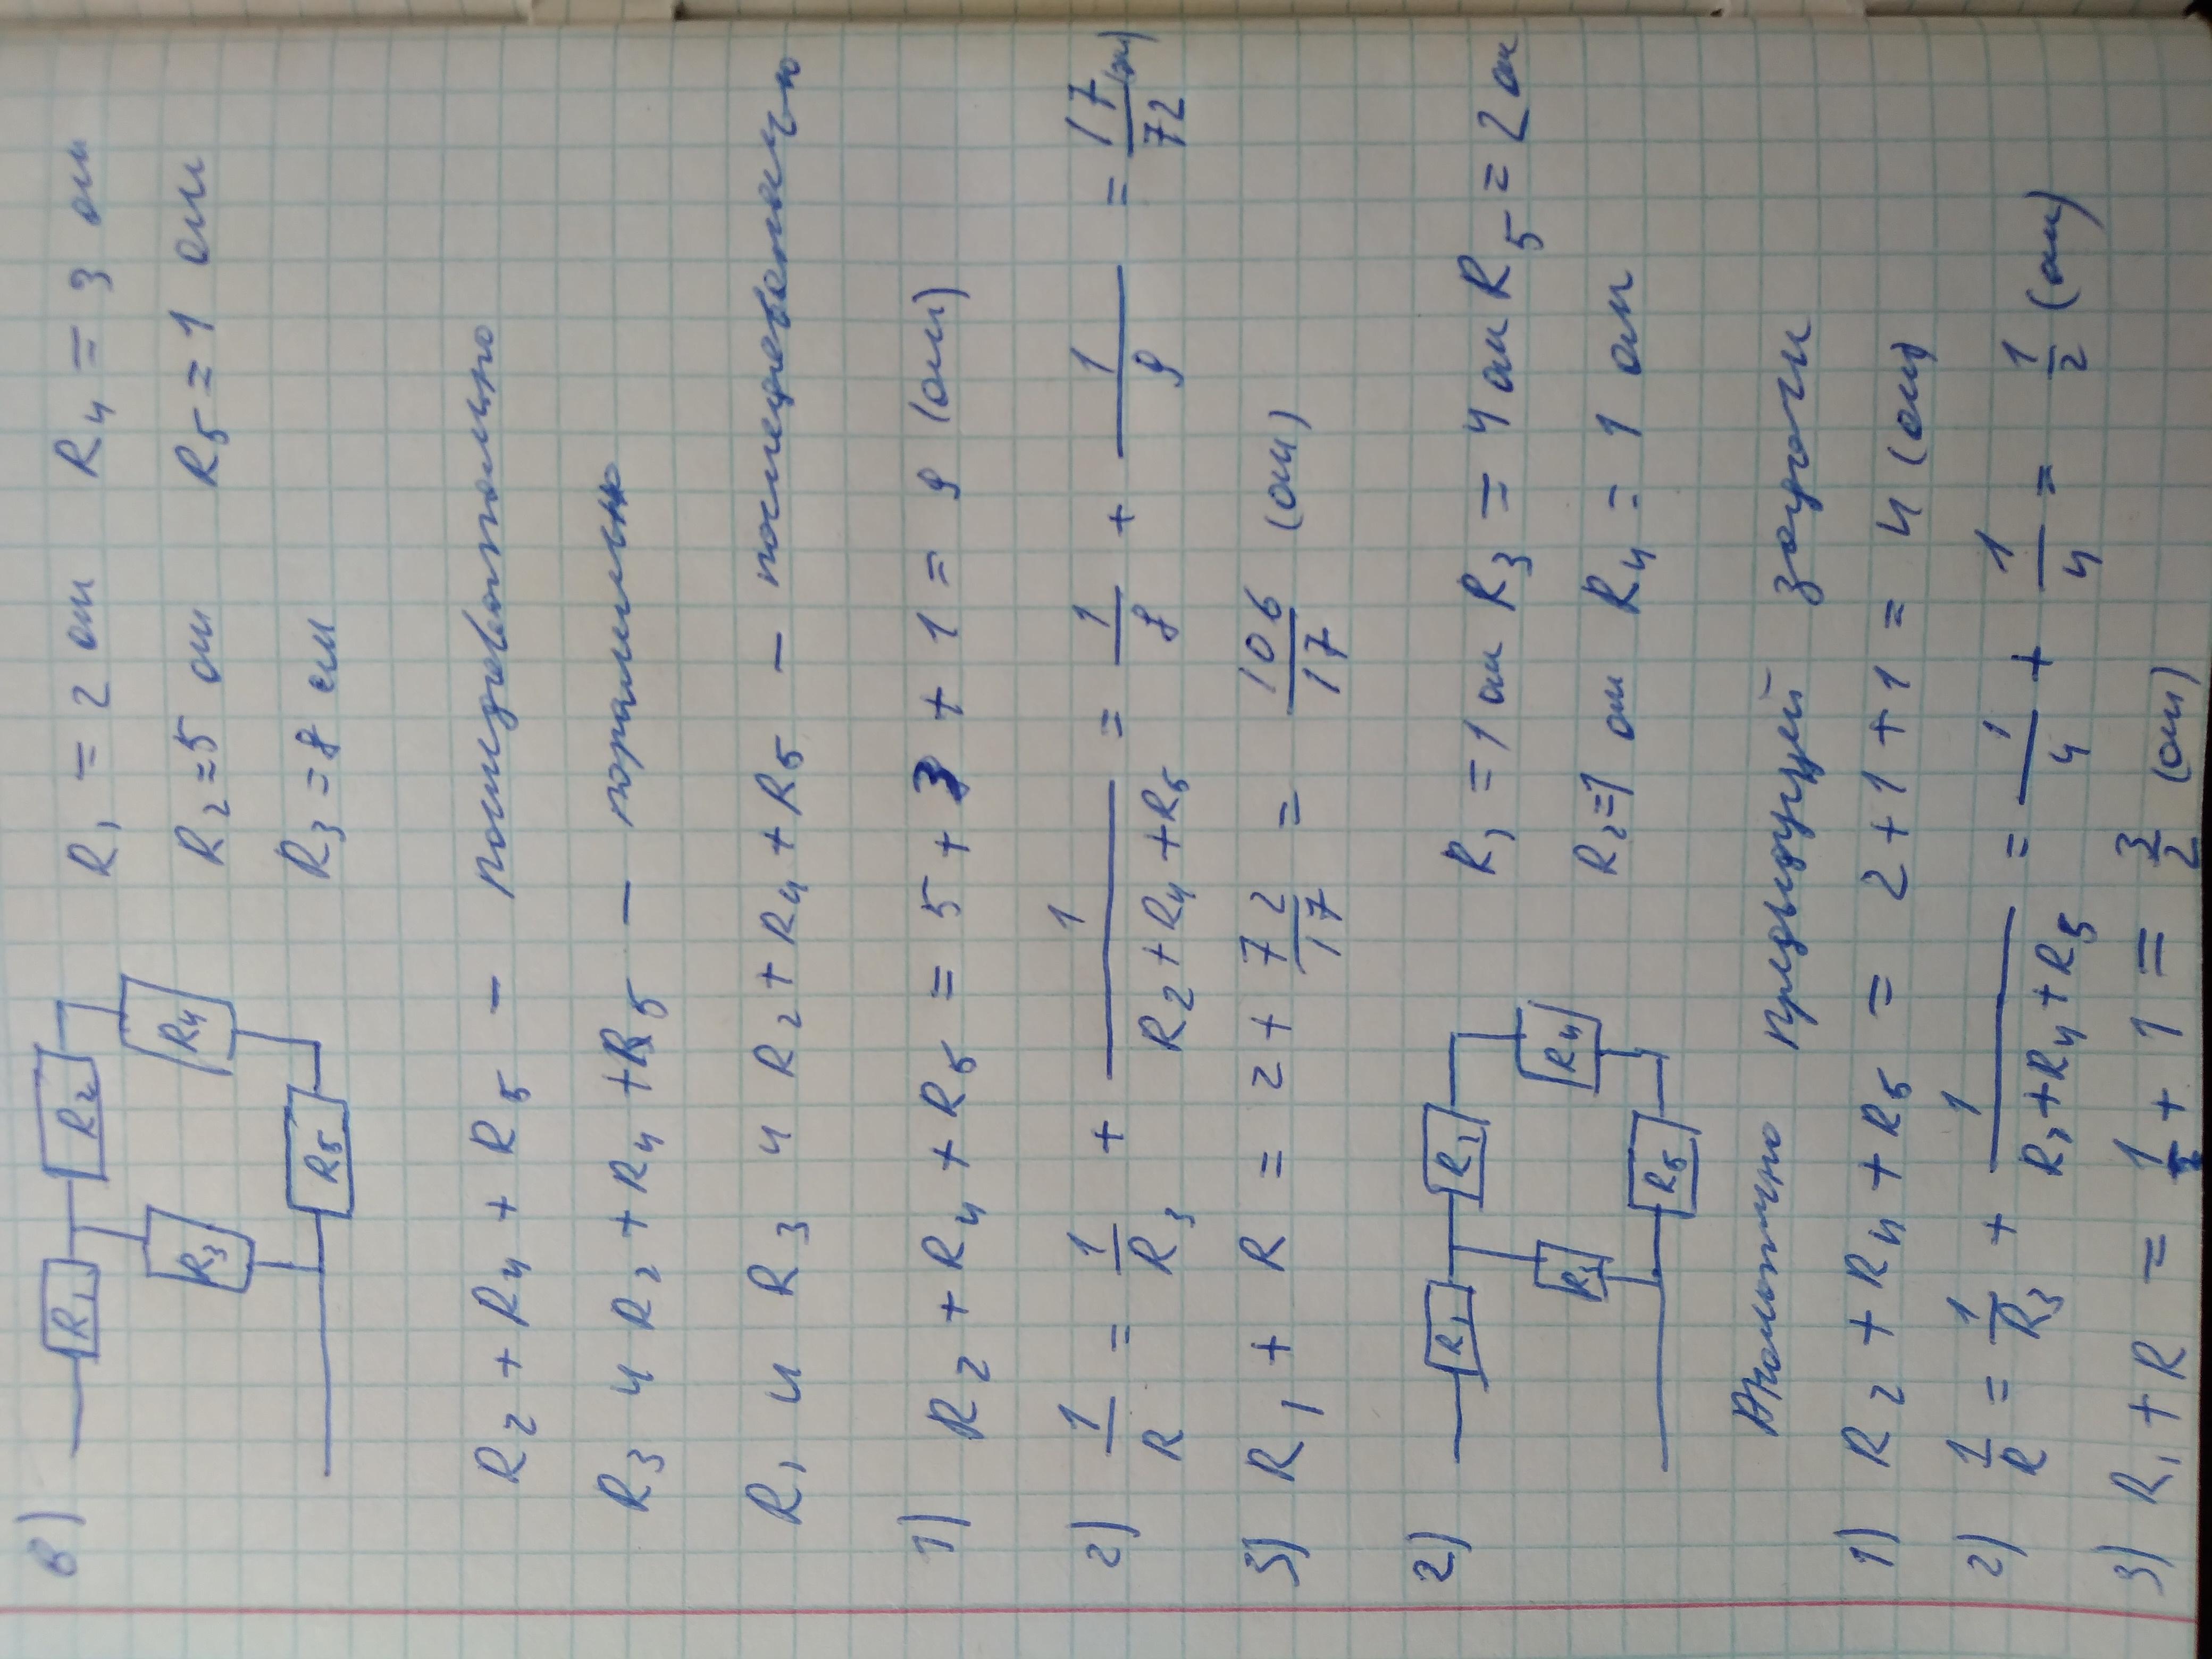 в)
R1 R2 R3 R4 R5
R1 = 2 ом R4 = 3 ом
R2 = 5 ом R5 = 1 ом
R3 = 8 ом
R2 + R4 + R5 – последовательно
R3 и R2 + R4 + R5 – паралельно
R1 и R3 и R2 + R4 + R5 –
1) R2 + R4 + R5 = 5 + 3 + 1 = 9 (ом)
2) 1/R = 1/R3 + 1/(R2 + R4 + R5) = 1/8 + 1/9 = 17/72 (ом)
3) R1 + R = 2 + 72/17 = 106/17 (ом)
2)
R1 R2 R3 R4 R5
R1 = 1 ом R3 = 4 ом R5 = 2 ом
R2 = 1 ом R4 = 1 ом
Аналогично предыдущей задачи
1) R2 + R4 + R5 = 2 + 1 + 1 = 4 (ом)
2) 1/R = 1/R3 + 1/(R2 + R4 + R5) = 1/4 + 1/4 = 1/2 (ом)
3) R1 + R = 1/2 + 1 = 3/2 (ом)